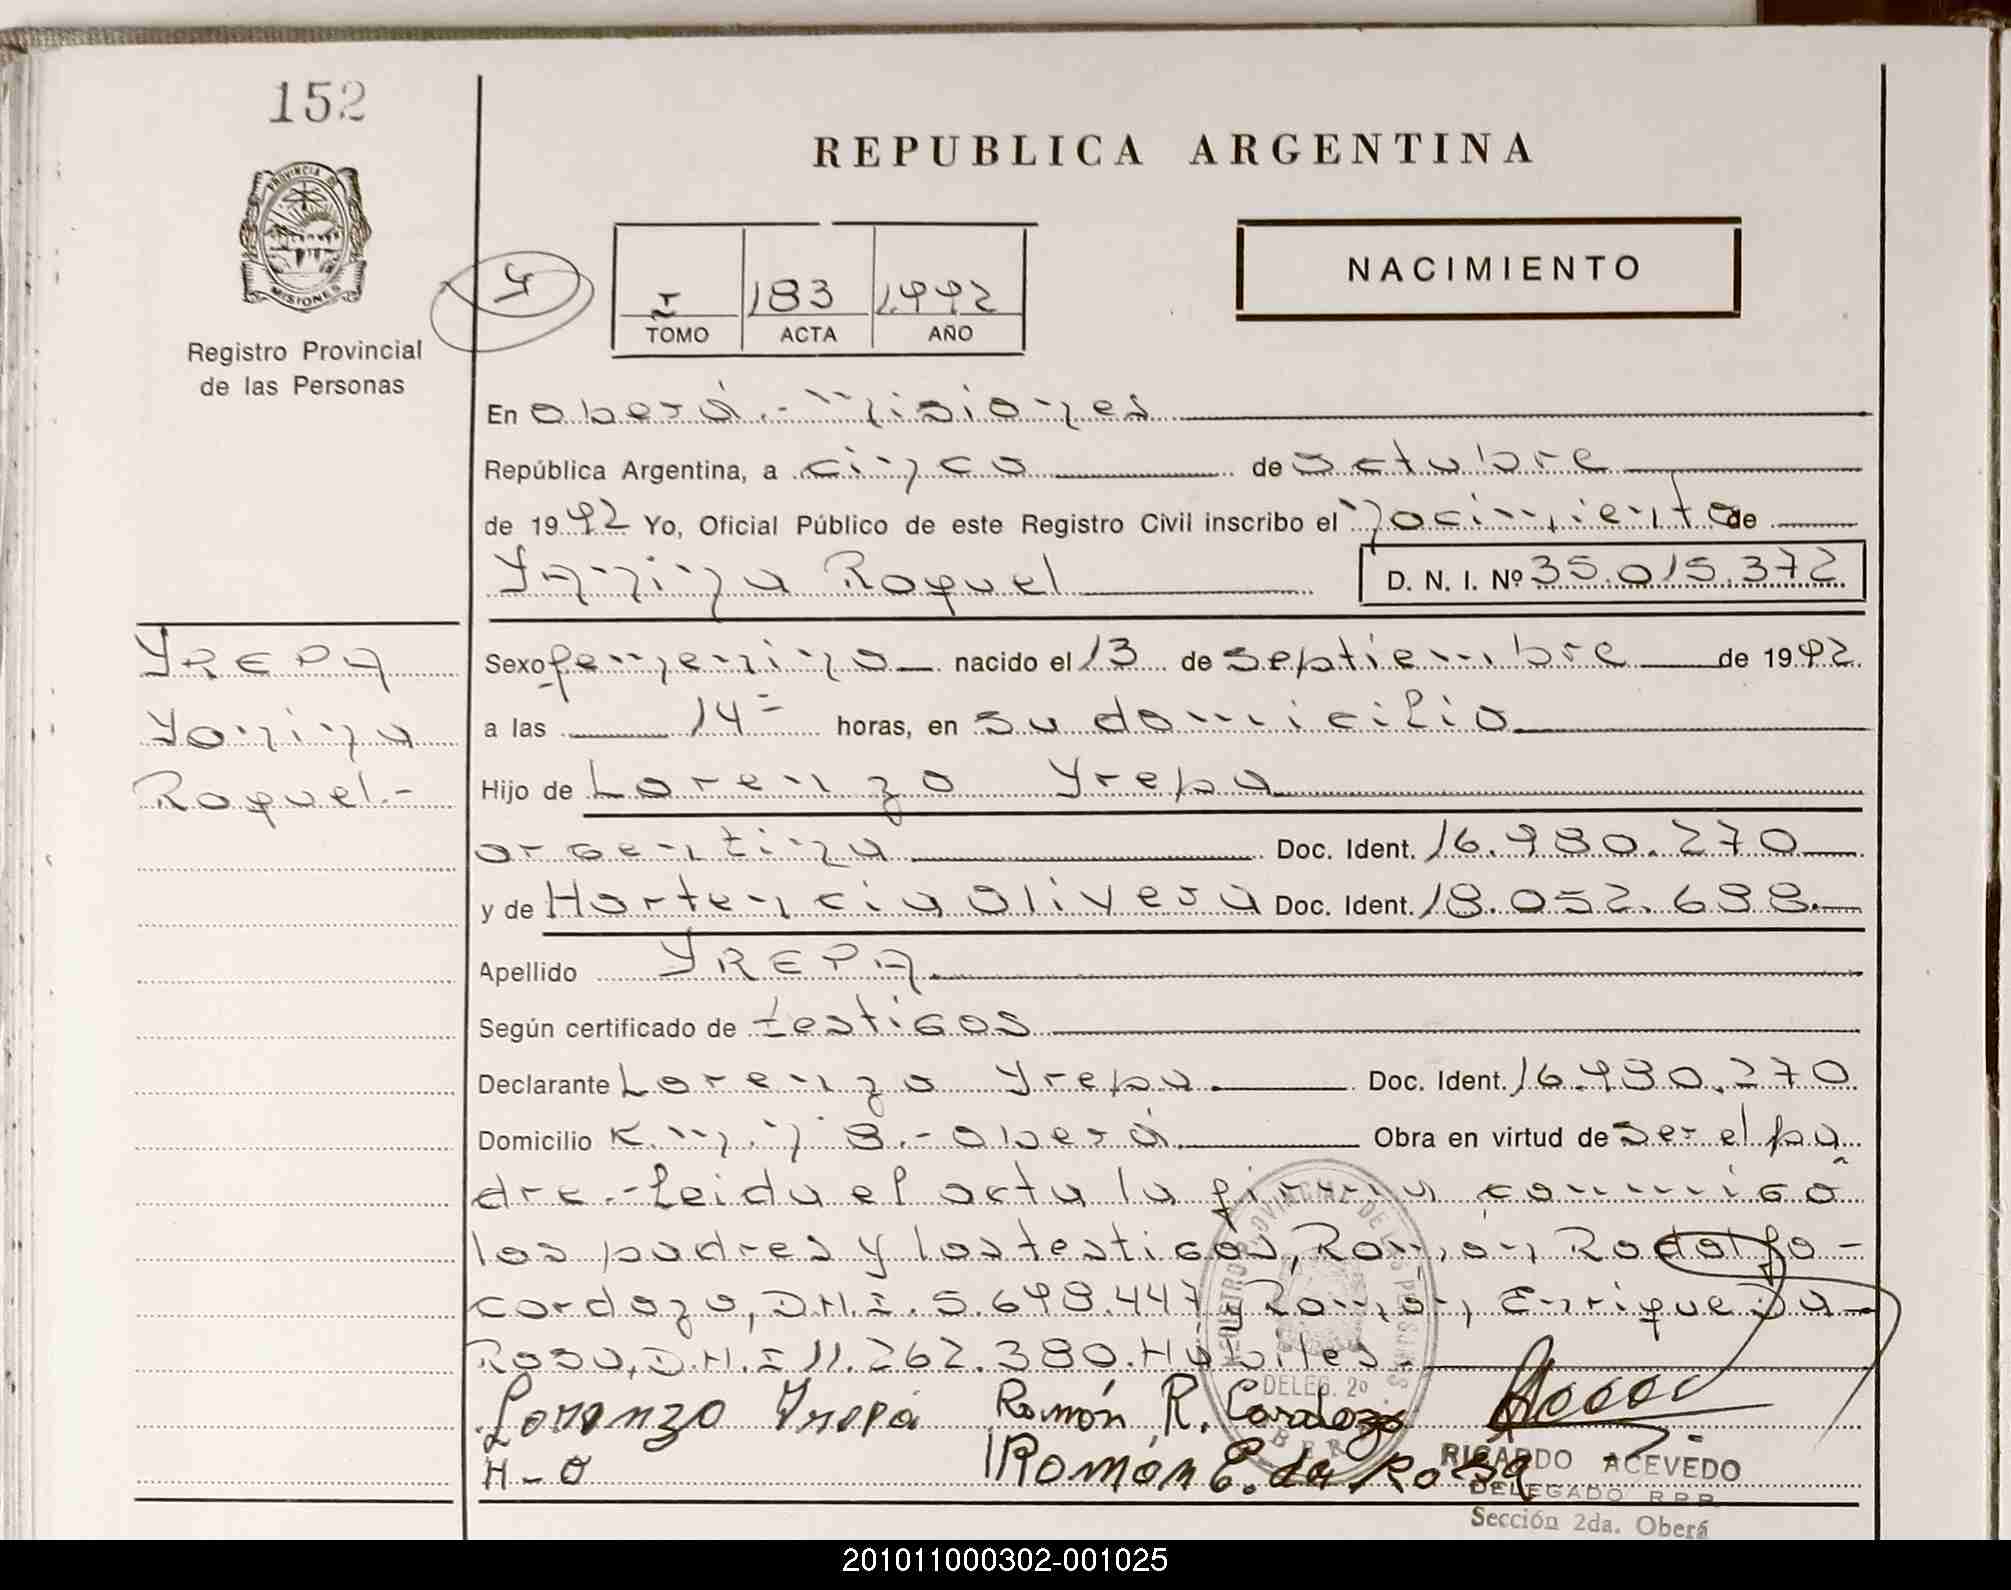 152
REPUBLICA ARGENTINA
PROVINCIA DE
MISIONES
Registro Provincial
de las Personas
I 183 1992
TOMO ACTA AÑO
NACIMIENTO
En Oberá.- Misiones
República Argentina, a cinco de octubre
de 1992 Yo, Oficial Público de este Registro Civil inscribo el nacimiento de
Yanina Raquel D. N. I. Nº 35.015.372
YREPA
Yanina
Raquel.-
Sexo femenino nacido el 13 de septiembre de 1992.
a las 14= horas, en su domicilio
Hijo de Lorenzo Yrepa
argentina Doc. Ident. 16.980.270
y de Hortencia Olivera Doc. Ident. 18.052.688.
Apellido YREPA
Según certificado de testigos
Declarante Lorenzo Yrepa Doc. Ident. 16.980.270
Domicilio K.m. 8.- Oberá Obra en virtud de ser el pa
dre.- Leida el acta la firman conmigo
los padres y los testigos, Ramón Rodolfo -
Cardozo, D.N.I. 5.698.447 y Ramón Enrique Da
Rosa, D.N.I 11.262.380. Habiles.
Lorenzo Yrepa Ramón R. Cardozo
H-O Román E. da Rosa
REGISTRO PROVINCIAL DE LAS PERSONAS
DELEG. 2º
RICARDO ACEVEDO
DELEGADO R.P.P.
Sección 2da. Oberá
201011000302-001025